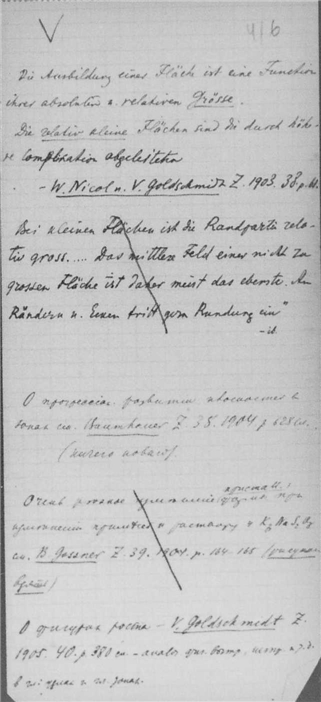 V 416
Die Ausbildung einer Fläche ist eine Function
ihrer absoluten u. relativen Grösse.
Die relativ kleine Flächen sind die durch höhe-
re Complikation abgeleiteten
- W. Nicol u. V. Goldschmidt Z. 1903. 38. p.
Bei kleinen Flächen ist die Randpartie rela-
tiv gross..... Das mittlere Feld einer nicht zu
grossen Fläche ist daher meist das eberste. An
Rändern u. Ecken tritt gern Rundung ein"
- id.
О прогрессив. развитии плоскостей в
зонах см. Baumhauer Z 38. 1904 p 628 сл.
(ничего нового).
кристалл.
Очень резкое изменение формы при
изменении примеси к раствору
см. B Gossner Z. 39. 1904. p. 164-165 (рисунки
взять)
О фигурах роста - V. Goldschmidt Z.
1905. 40. p 380 сл - и т.д.
в гл.